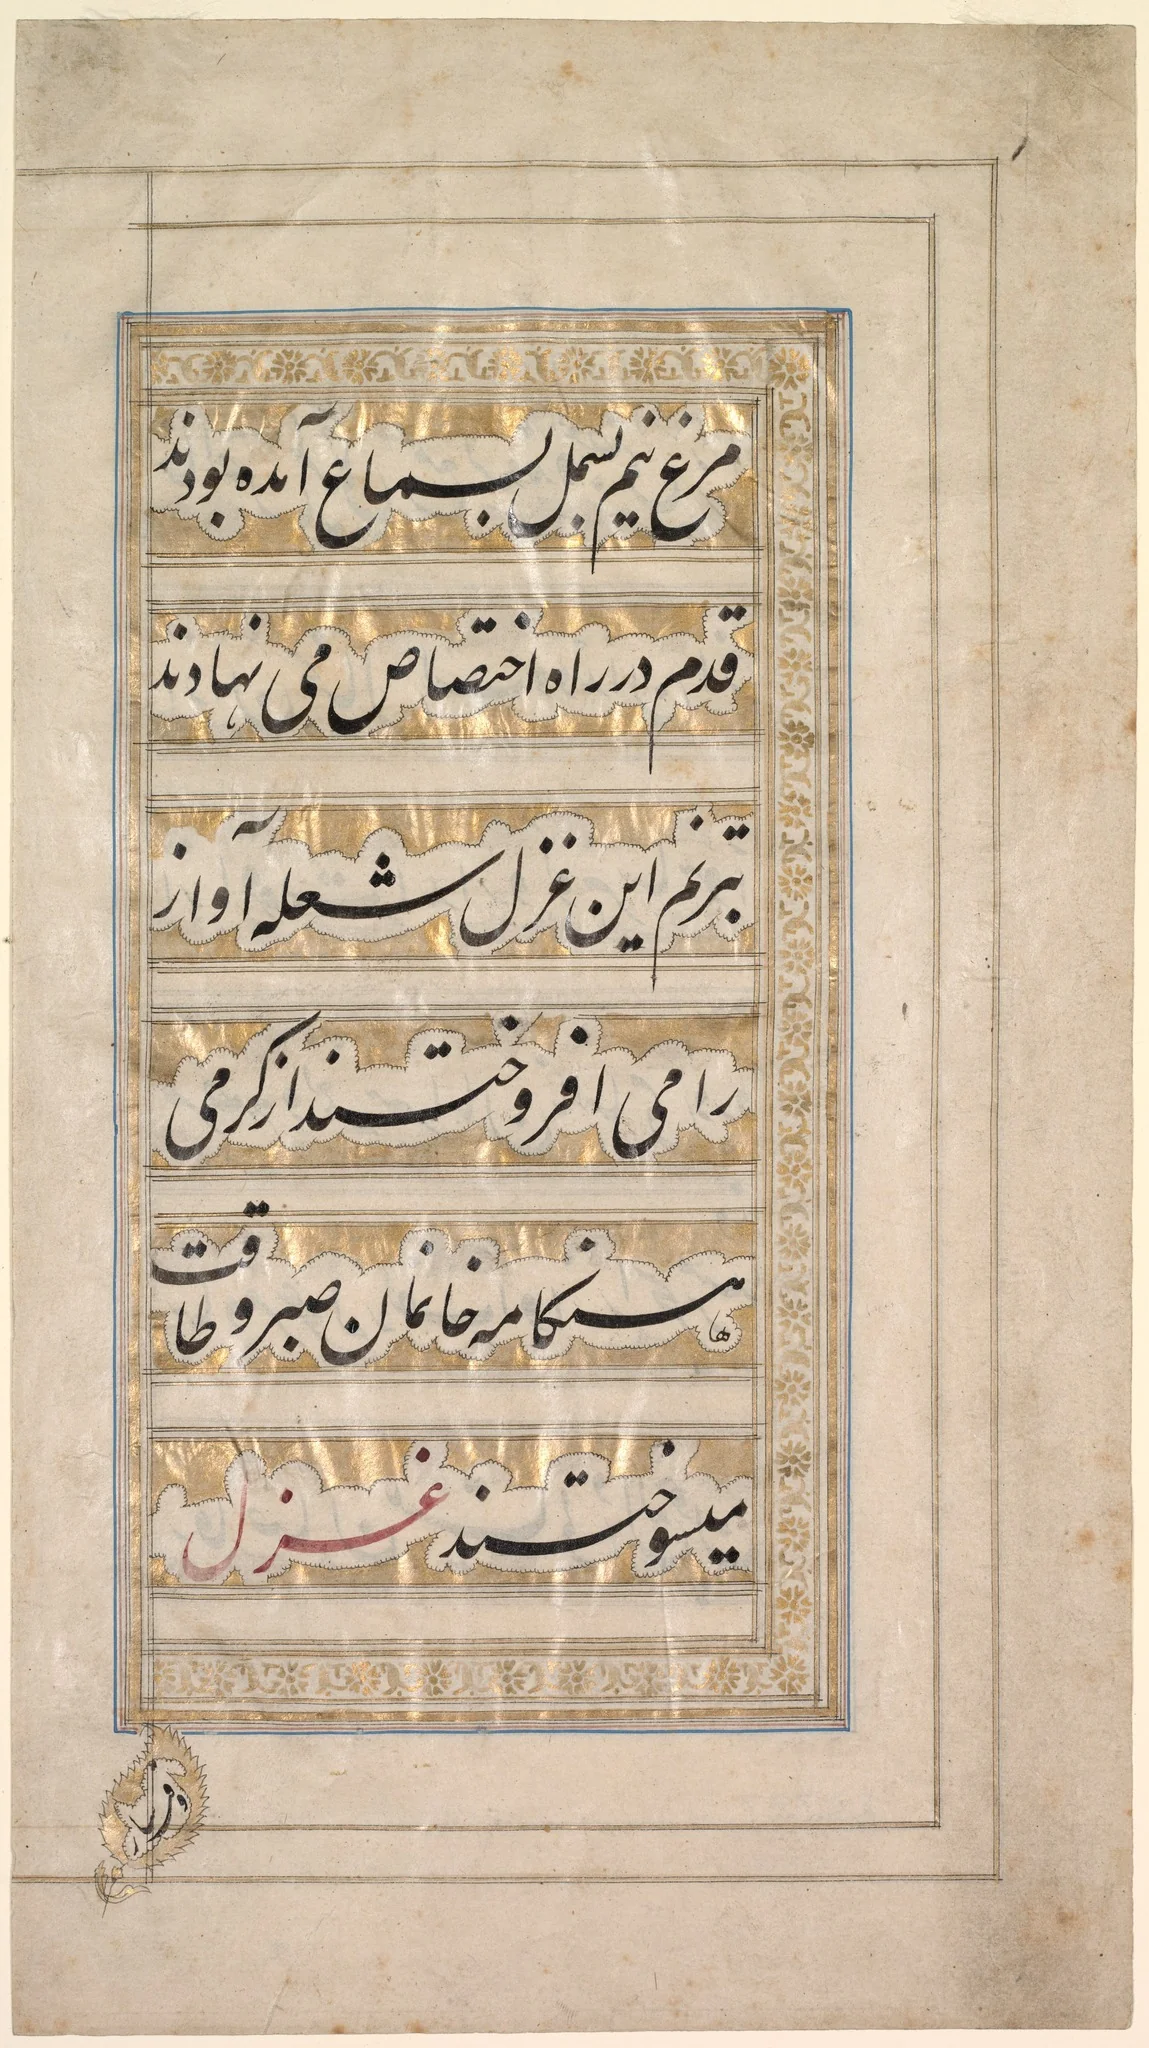 مرغ نیم بسمل بسماع آمده بودند
قدم در راه اختصاص می نهادند
بترنم این غزل شعله آواز
را می افروختند از کرمی
هنکامه خانمان صبر و طاقت
میسوختند غزل